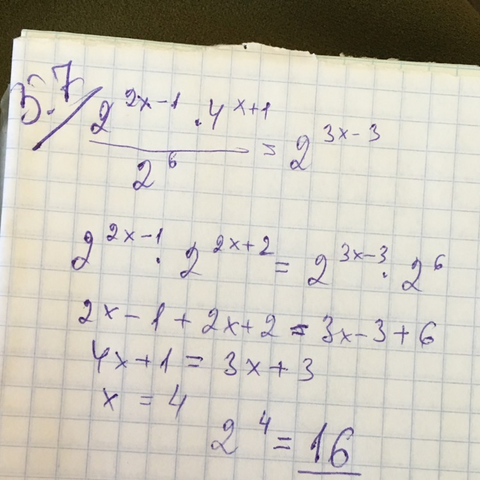 5.7/ (2^(2x-1) · 4^(x+1)) / 2^6 = 2^(3x-3)
2^(2x-1) · 2^(2x+2) = 2^(3x-3) · 2^6
2x-1+2x+2=3x-3+6
4x+1=3x+3
x=4
2^4=16